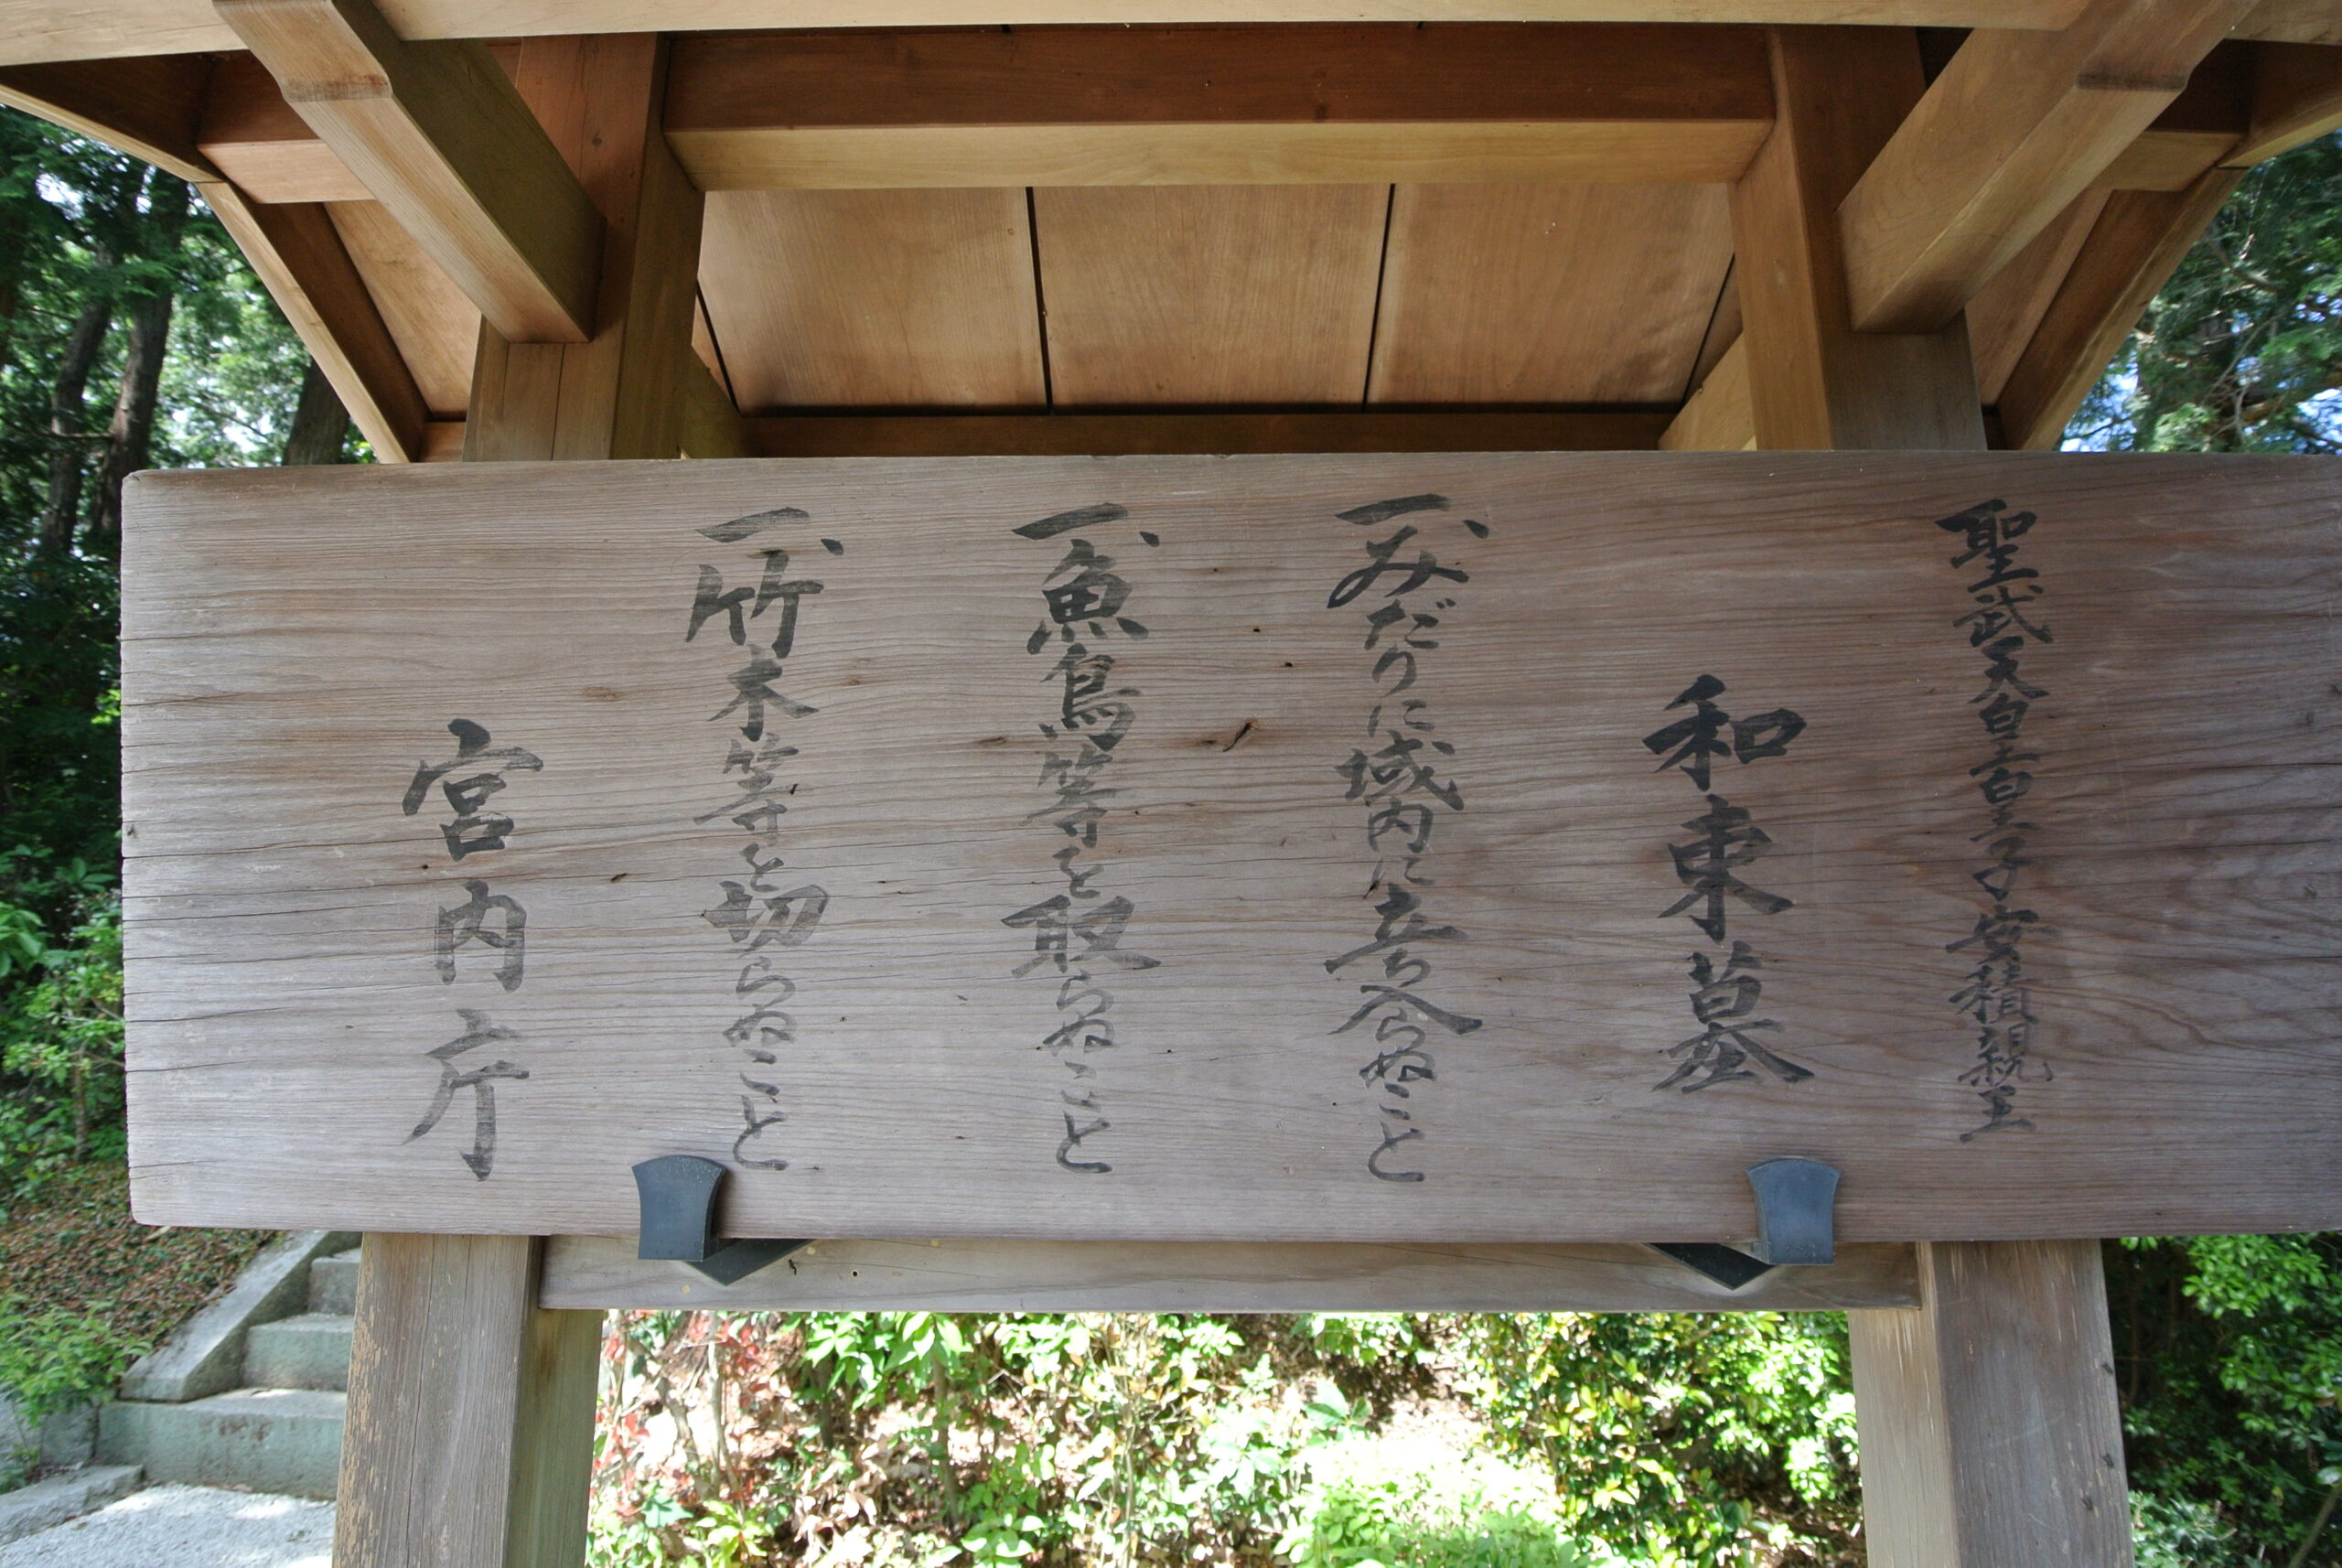 聖武天皇皇子安積親王
和束墓
一、みだりに域内に立ち入らぬこと
一、魚鳥等を取らぬこと
一、竹木等を切らぬこと
宮内庁